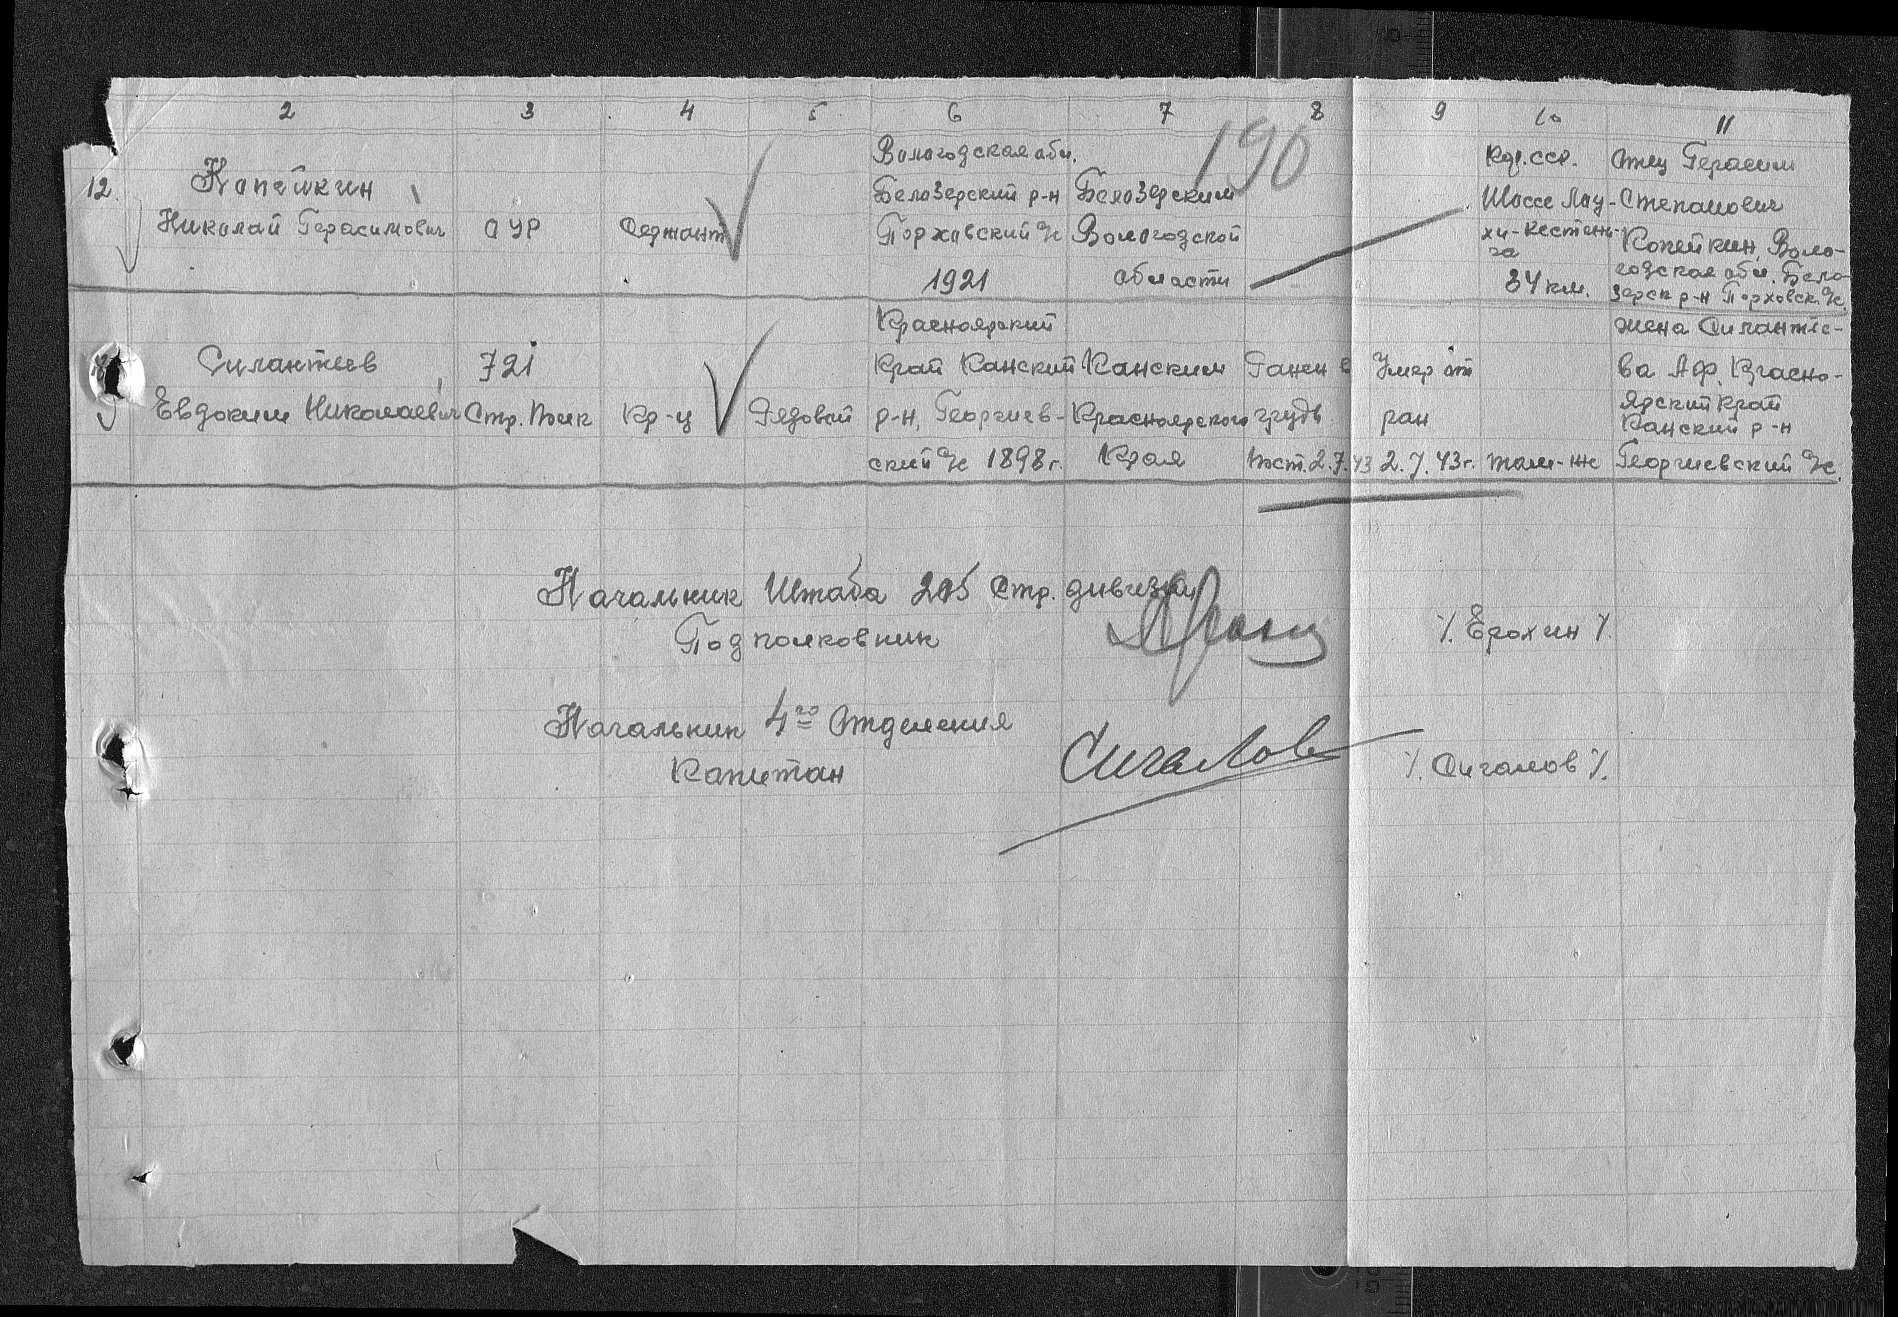 2 3 4 5 6 7 8 9 10 11
190
12.
Копейкин
Николай Герасимович
ОУР
Сержант
Вологодская обл.
Белозерский р-н
Порховский с/с
1921
Белозерским
Вологодской
области
Кар.ССР.
Шоссе Лау-
хи-Кестень-
га
34 км.
Отец Герасим
Степанович
Копейкин, Воло-
годская обл. Бело-
зерск р-н Порховск. с/с
Силантьев
Евдоким Николаевич
721
Стр. Полк
Кр-ц
Рядовой
Красноярский
край Канский
р-н, Георгиев-
ский с/с 1898 г.
Канским
Красноярского
Края
Ранен в
грудь
2.7.43
Умер от
ран
2.7.43 г.
там-же
жена Силантье-
ва Аф. Красно-
ярский край
Канский р-н
Георгиевский с/с
Начальник Штаба 205 Стр. дивизии
Подполковник
/. Ерохин /.
Начальник 4го Отделения
Капитан
Сигалов
/. Сигалов /.